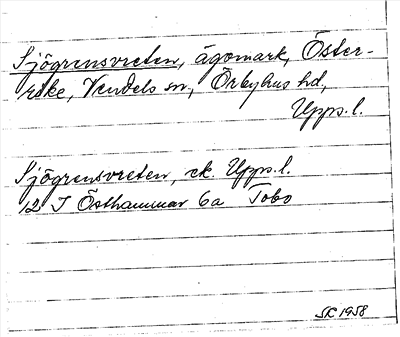 Sjögrensvreten, ägomark, Öster-
Eke, Vendels sn, Örbyhus hd,
Upps. l.
Sjögrensvreten, ek. Upps. l.
12 I Östhammar 6a Tobo
SK 1958